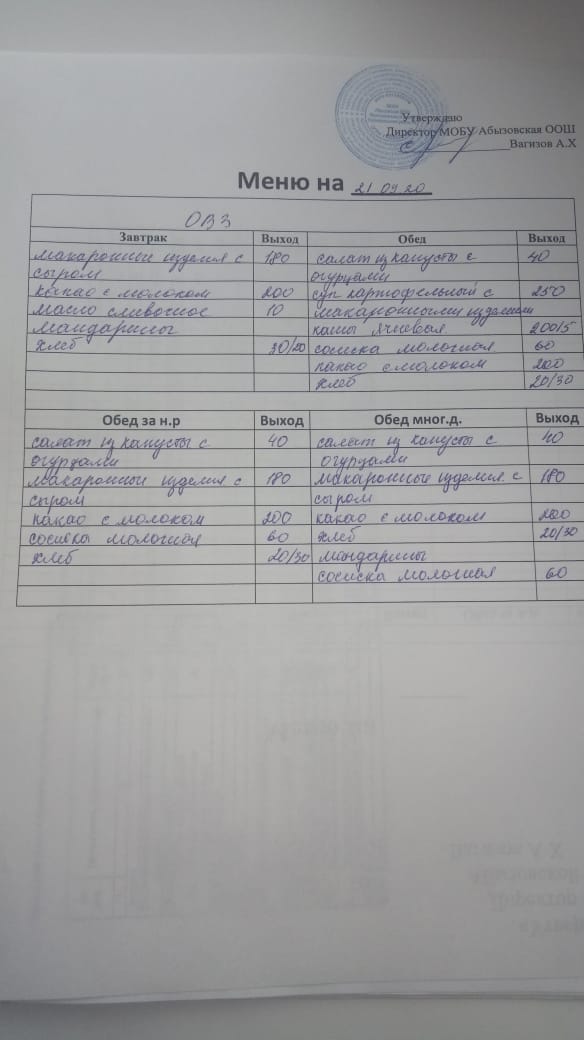 Утверждаю
Директор МОБУ Абызовская ООШ
Вагизов А.Х
Меню на 21 09 20
ОВЗ
Завтрак Выход Обед Выход
макаронные изделия с 180 салат из капусты с 40
сыром огурцами
какао с молоком 200 суп картофельный с 250
масло сливочное 10 макаронными изделиями
мандарины каша ячневая 200/5
хлеб 30/20 сосиска молочная 60
какао с молоком 200
хлеб 20/30
Обед за н.р Выход Обед мног.д. Выход
салат из капусты с 40 салат из капусты с 40
огурцами огурцами
макаронные изделия с 180 макаронные изделия с 180
сыром сыром
какао с молоком 200 какао с молоком 200
сосиска молочная 60 хлеб 20/30
хлеб 20/30 мандарины
сосиска молочная 60